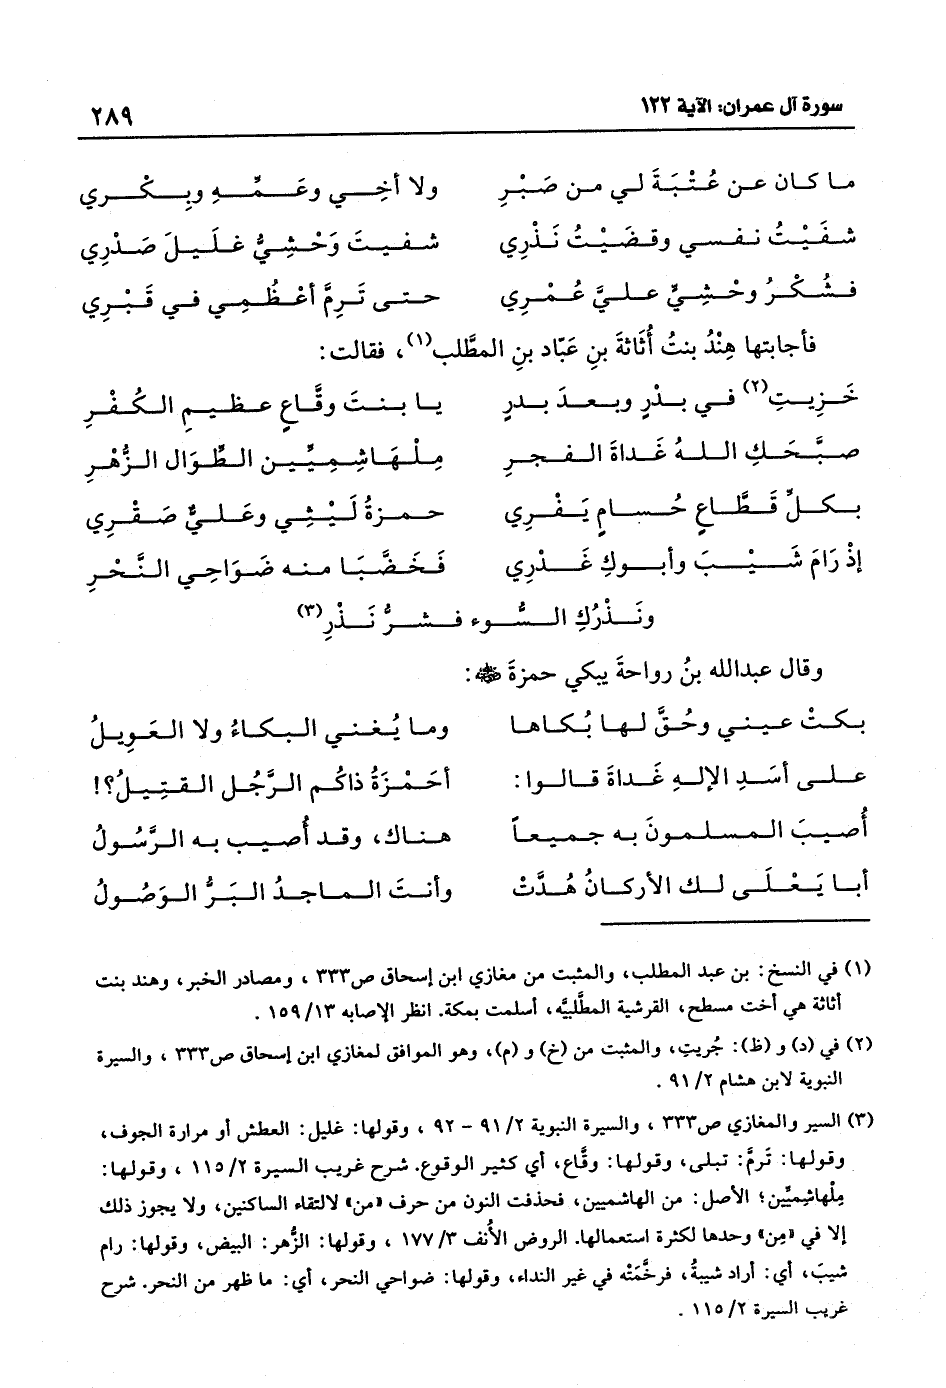 سورة آل عمران: الآية ١٢٢
٢٨٩
ما كان عن عُتْبَةَ لي من صَبْرِ ولا أخِي وعَمِّهِ وبِكْرِي
شفَيْتُ نفسي وقضَيْتُ نَذْرِي شفيتَ وَحْشِيُّ غلَيلَ صَدْرِي
فشُكْرُ وحْشِيٍّ عليَّ عُمْرِي حتى تَرِمَّ أعْظُمِي في قَبْرِي
فأجابتها هِنْدُ بنتُ أُثَاثةَ بنِ عَبّاد بنِ المطَّلب(١)، فقالت:
خَزِيتِ(٢) في بدْرٍ وبعدَ بدرِ يا بنتَ وقَّاعٍ عظيمِ الكُفْرِ
صبَّحَكِ اللهُ غَداةَ الفجرِ مِلْهَاشِمِيِّين الطِّوَال الزُّهْرِ
بكلِّ قَطَّاعٍ حُسامٍ يَفْرِي حمزةُ لَيْثِي وعَليٌّ صَقْرِي
إذْ رَامَ شَيْبَ وأبوكِ غَدْرِي فَخَضَّبَا منه ضَوَاحِي النَّحْرِ
ونَذْرُكِ السُّوء فشرُّ نَذْرِ(٣)
وقال عبدالله بنُ رواحةَ يبكي حمزةَ ﵁:
بكتْ عيني وحُقَّ لها بُكاها وما يُغني البكاءُ ولا العَويلُ
على أسَدِ الإلهِ غَداةَ قالوا: أحَمْزَةُ ذاكُم الرَّجُل القتِيلُ؟!
أُصيبَ المسلمونَ به جميعاً هناك، وقد أُصيب به الرَّسُولُ
أبا يَعْلَى لك الأركانُ هُدَّتْ وأنتَ الماجدُ البَرُّ الوَصُولُ
(١) في النسخ: بن عبد المطلب، والمثبت من مغازي ابن إسحاق ص٣٣٣ ، ومصادر الخبر، وهند بنت
أثاثة هي أخت مسطح، القرشية المطَّلبيَّه، أسلمت بمكة. انظر الإصابه ١٣/ ١٥٩ .
(٢) في (د) و (ظ): جُريتِ، والمثبت من (خ) و (م)، وهو الموافق لمغازي ابن إسحاق ص٣٣٣ ، والسيرة
النبوية لابن هشام ٢/ ٩١ .
(٣) السير والمغازي ص٣٣٣ ، والسيرة النبوية ٢/ ٩١ - ٩٢ ، وقولها: غليل: العطش أو مرارة الجوف،
وقولها: تَرِمَّ: تبلى، وقولها: وقَّاع، أي كثير الوقوع. شرح غريب السيرة ٢/ ١١٥ ، وقولها:
مِلْهاشميِّين؛ الأصل: من الهاشميين، فحذفت النون من حرف «من» لالتقاء الساكنين، ولا يجوز ذلك
إلا في «مِن» وحدها لكثرة استعمالها. الروض الأُنف ٣/ ١٧٧ ، وقولها: الزُّهر: البيض، وقولها: رام
شيبَ، أي: أراد شيبةُ، فرخَّمَتْه في غير النداء، وقولها: ضواحي النحر، أي: ما ظهر من النحر. شرح
غريب السيرة ٢/ ١١٥ .